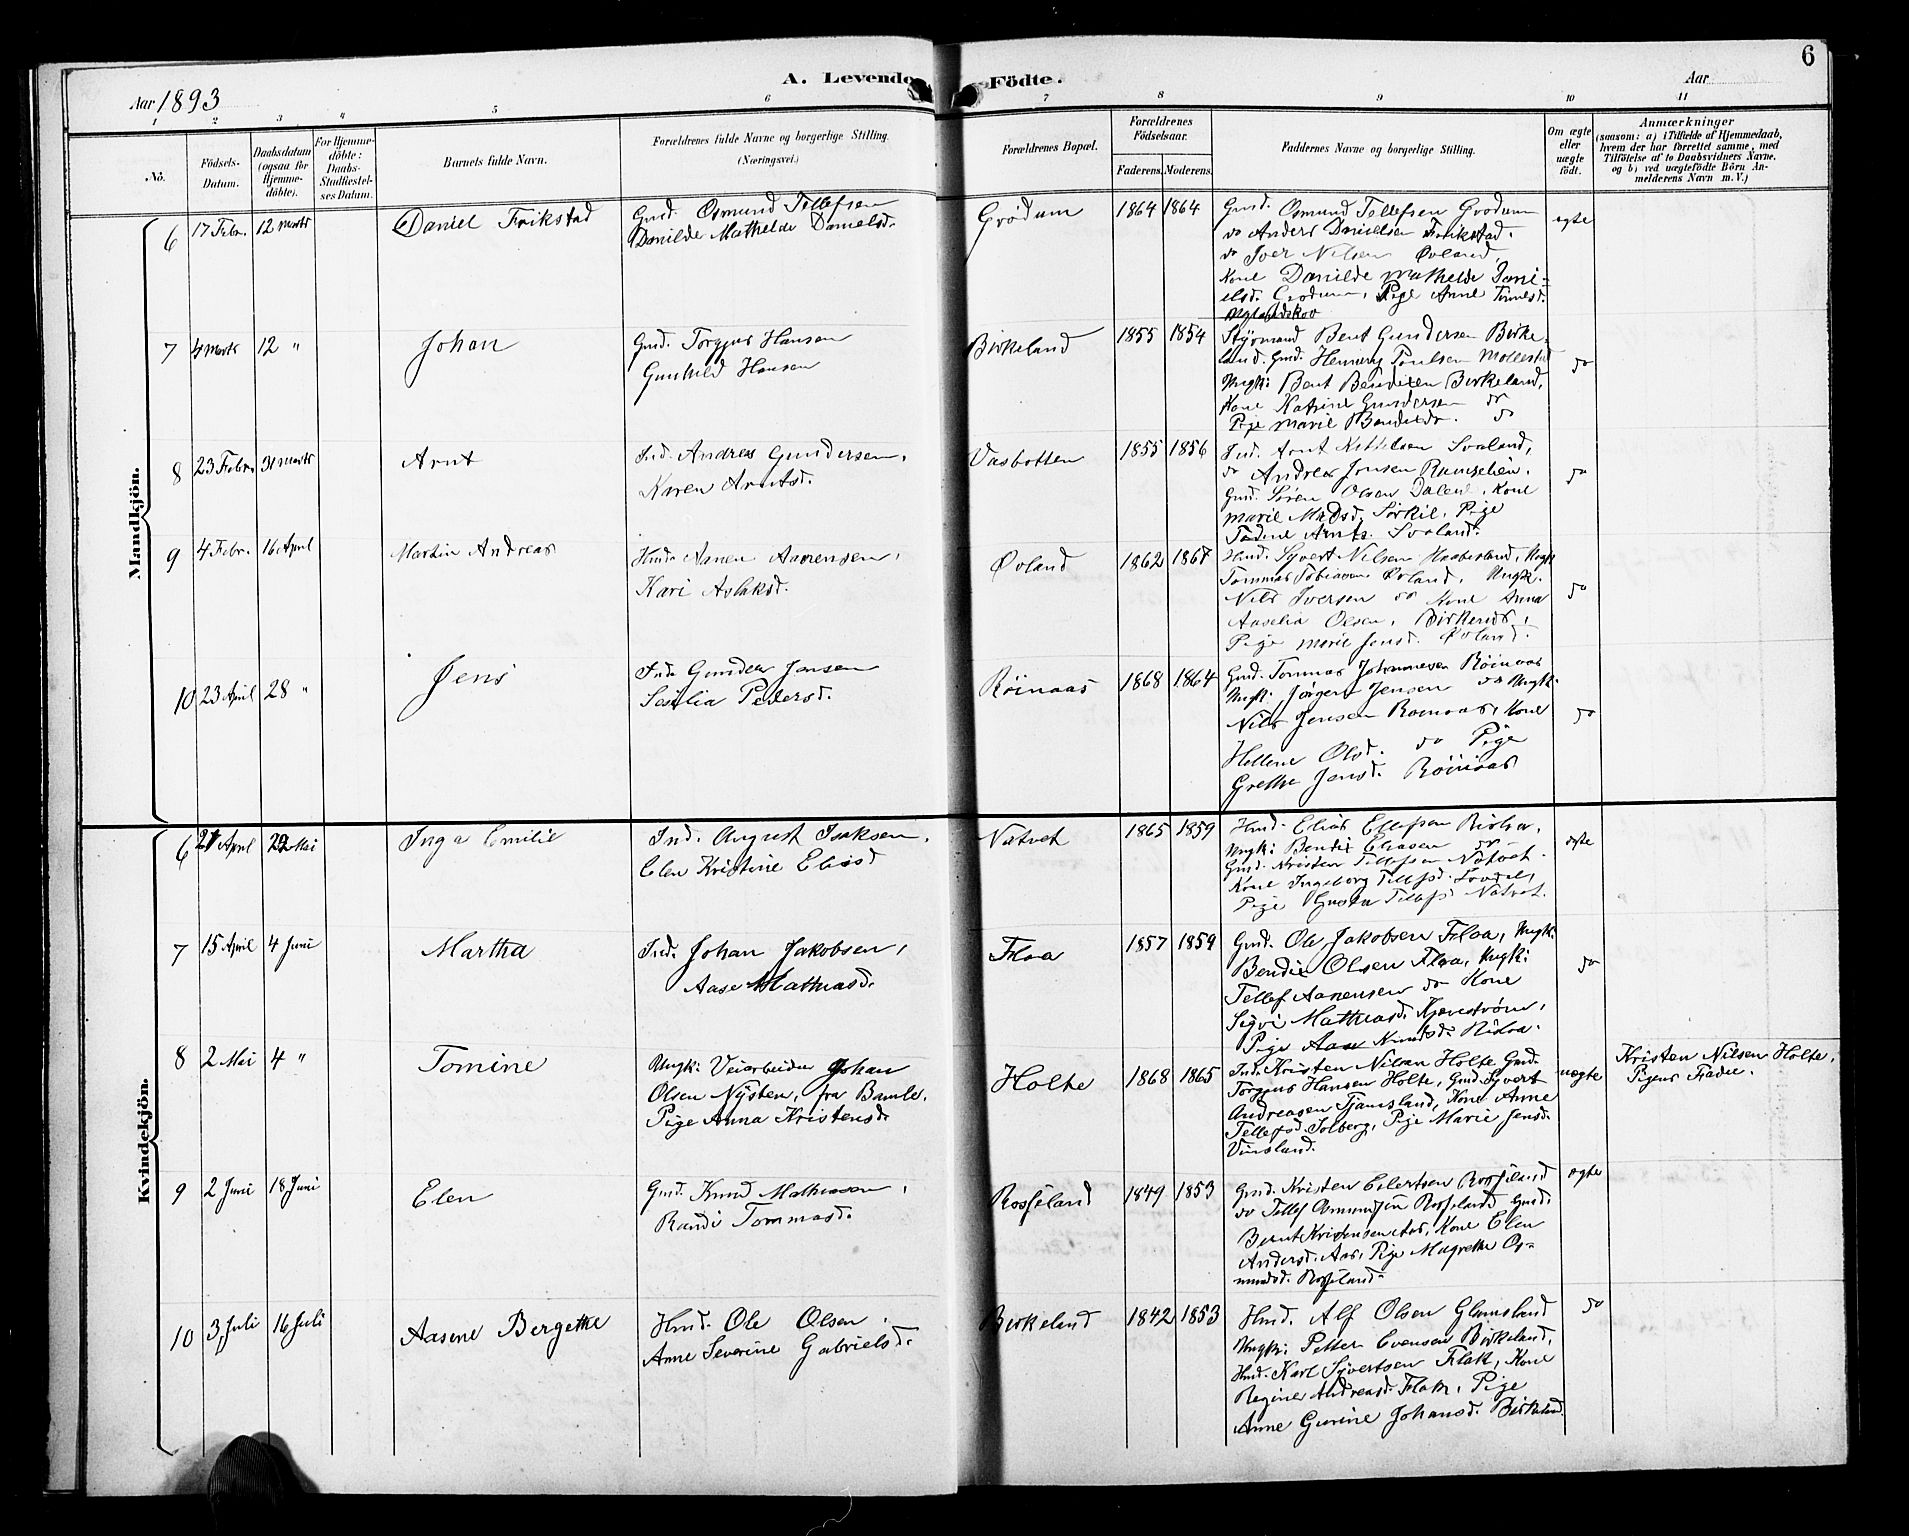 6
A. Levende Födte.
Aar
Aar 1893
1 2 3 4 5 6 7 8 9 10 11
No.
Födsels-
Datum.
Daabsdatum
(ogsaa for
Hjemme-
döbte).
For Hjemme-
döbte:
Daabs-
Stadfæstel-
ses Datum.
Barnets fulde Navn.
Forældrenes fulde Navne og borgerlige Stilling.
(Næringsvei.)
Forældrenes Bopæl.
Forældrenes
Födselsaar.
Faderens.
Moderens.
Faddernes Navne og borgerlige Stilling.
Om ægte
eller
uægte
født.
Anmærkninger
(saasom: a) i Tilfælde af Hjemmedaab,
hvem der har forrettet samme, med
Tilföielse af to Daabsvidners Navne,
og b) ved uægtefödte Börn An-
melderens Navn m. V.)
Mandkjön.
6 17 Febr. 12 Marts Daniel Frikstad
Gmd. Osmund Tellefsen
Danilde Mathelde Danielsd.
Grödum 1864 1864
Gmd. Osmund Tellefsen Grödum
do Anders Danielsen Frikstad.
do Iver Nilsen Øvland,
Kone Danielde Mathelde Dani-
elsd. Grödum, Pige Anne
ægte
7 4 Marts 12 " Johan
Gmd. Torgjus Hansen
Gunhild Hansen
Birkeland 1855 1854
Styrmand Bent Gundersen Birke-
land. Gmd. Henrik Poulsen
Ungk: Bent Bendixen Birkeland,
Kone Katrine Gundersen do
Pige Marie Bendixdr. do
do
8 23 Febr. 31 Marts Arnt
Ind. Andreas Gundersen,
Karen Arntsd.
Vasbotten 1855 1856
Ind. Arnt Kittelsen Svaland,
do Andreas Jensen
Gmd. Sören Olsen Dalene, Kone
Marie Madsd. Pige
Arnts. Svaland.
do
9 4 Febr. 16 April Martin Andreas
Hmd. Aanen Aanensen,
Kari Aslaksd.
Øvland 1862 1867
Hmd. Syvert Nilsen Ungk
Tommas Tobiasen Øvland, Ungk.
Nils Iversen do Kone Anna
Aaselia Olsen,
Pige Marie Jensd. Øvland.
do
10 23 April 28 " Jens
Ind. Gunder Jensen
Sesilia Pedersd.
Röinaas 1868 1864
Gmd. Tommas Johannesen Röinaas
Ungk: Jörgen Jensen do Ungk:
Nils Jensen Roinaas, Kone
Hellene Olsd. do Pige
Grethe Jensd. Röinaas
do
Kvindekjön.
6 21 April 22 Mai Inga Emilie
Ind. August Isaksen,
Elen Kristine Eliasd
Natvet 1865 1859
Hmd. Elias Ellefsen
Ungk: Bendix Eliasen do
Gmd. Kristen Tellefsen Natvet.
Kone Ingeborg Tellfsd.
Pige Gusta Tellfsd Natvet.
ægte
7 15 April 4 Juni Martha
Ind. Johan Jakobsen,
Aase Mathiasd.
Flaa 1857 1859
Gmd. Ole Jakobsen Flaa, Ungk:
Bendix Olsen Flaa, Ungk:
Tellef Aanensen do Kone
Sigri Mathiasd.
Pige Aase Knudsd.
do
8 2 Mai 4 " Tomine
Ungk: Veiarbeider Johan
Olsen Nysten, fra Bamle.
Pige Anna Kristensd.
Holte 1868 1865
Ind. Kristen Nilsen Holte Gmd.
Torgjus Hansen Holte, Gmd. Syvert
Andreasen Tjamsland, Kone Anne
Tellefsd. Solberg, Pige Marie Jensd.
Vinsland.
uægte
Kristen Nilsen Holte,
Pigens Fader.
9 2 Juni 18 Juni Elen
Gmd. Knud Mathiasen,
Randi Tommasd.
Rosseland 1849 1853
Gmd. Kristen Eilertsen Rosseland
do Tellef Osmundsen Rosseland Gmd.
Bernt Kristensen Aas, Kone Elen
Andersd. Aas, Pige Magrethe Os-
mundsd. Rosseland
ægte
10 3 Juli 16 Juli Aasene Bergethe
Hmd. Ole Olsen,
Anne Severine Gabrielsd.
Birkeland 1842 1853
Hmd. Alf Olsen Glamsland
Ungk: Petter Evensen Birkeland,
Hmd. Karl Syvertsen Flak, Kone
Regine Andreasd. Flak, Pige
Anne Gurine Johansd. Birkeland.
do